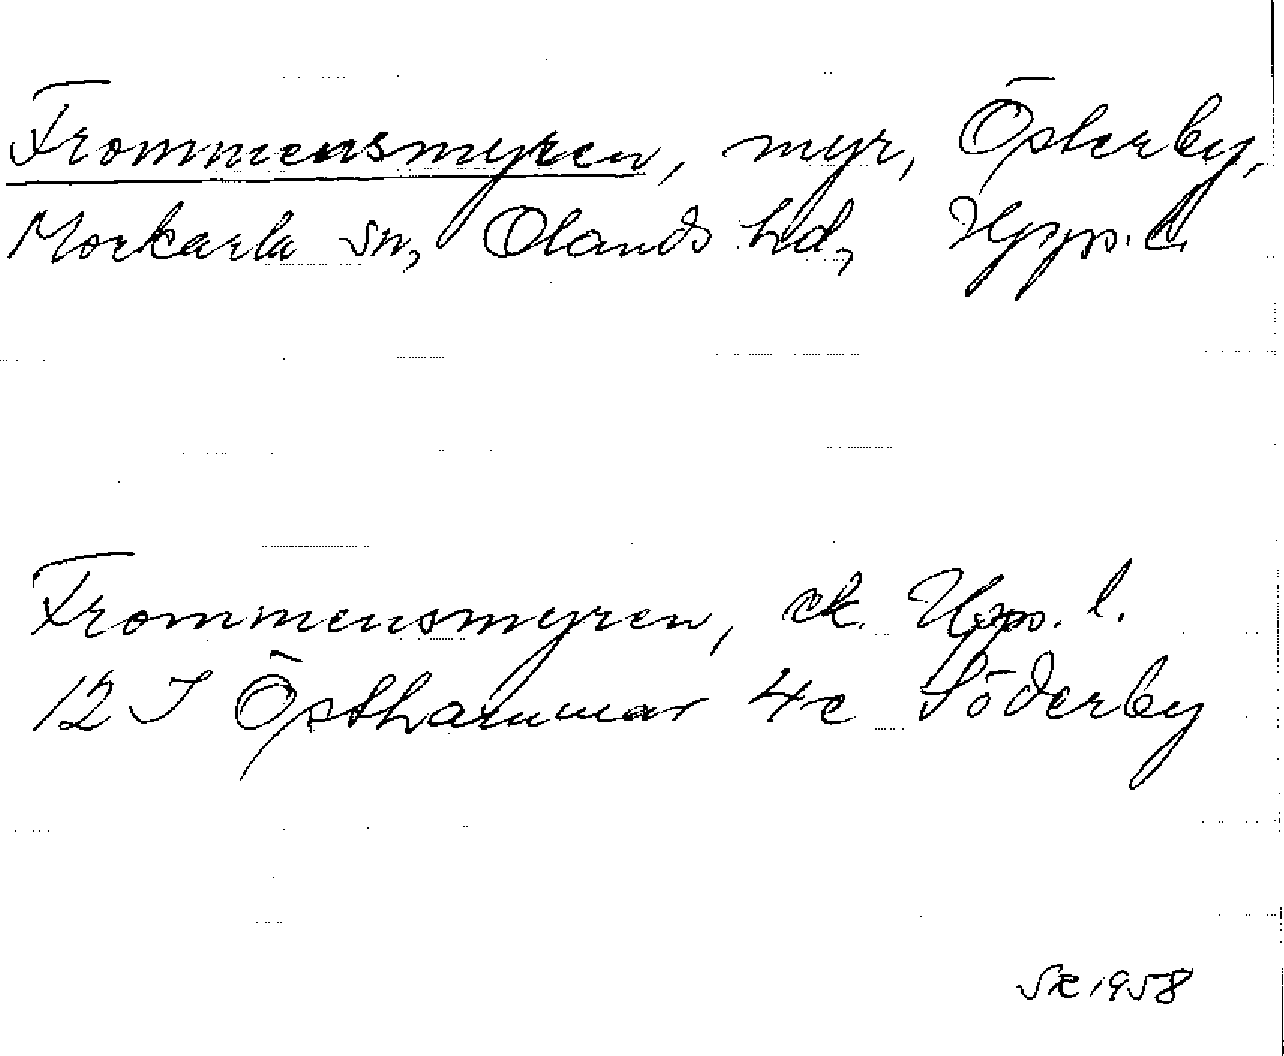 Frommensmyren, myr, Österby,
Morkarla sn, Olands hd, Upps. l.
Frommensmyren, ek. Upps. l.
12 I Östhammar 4c Söderby
SR 1958